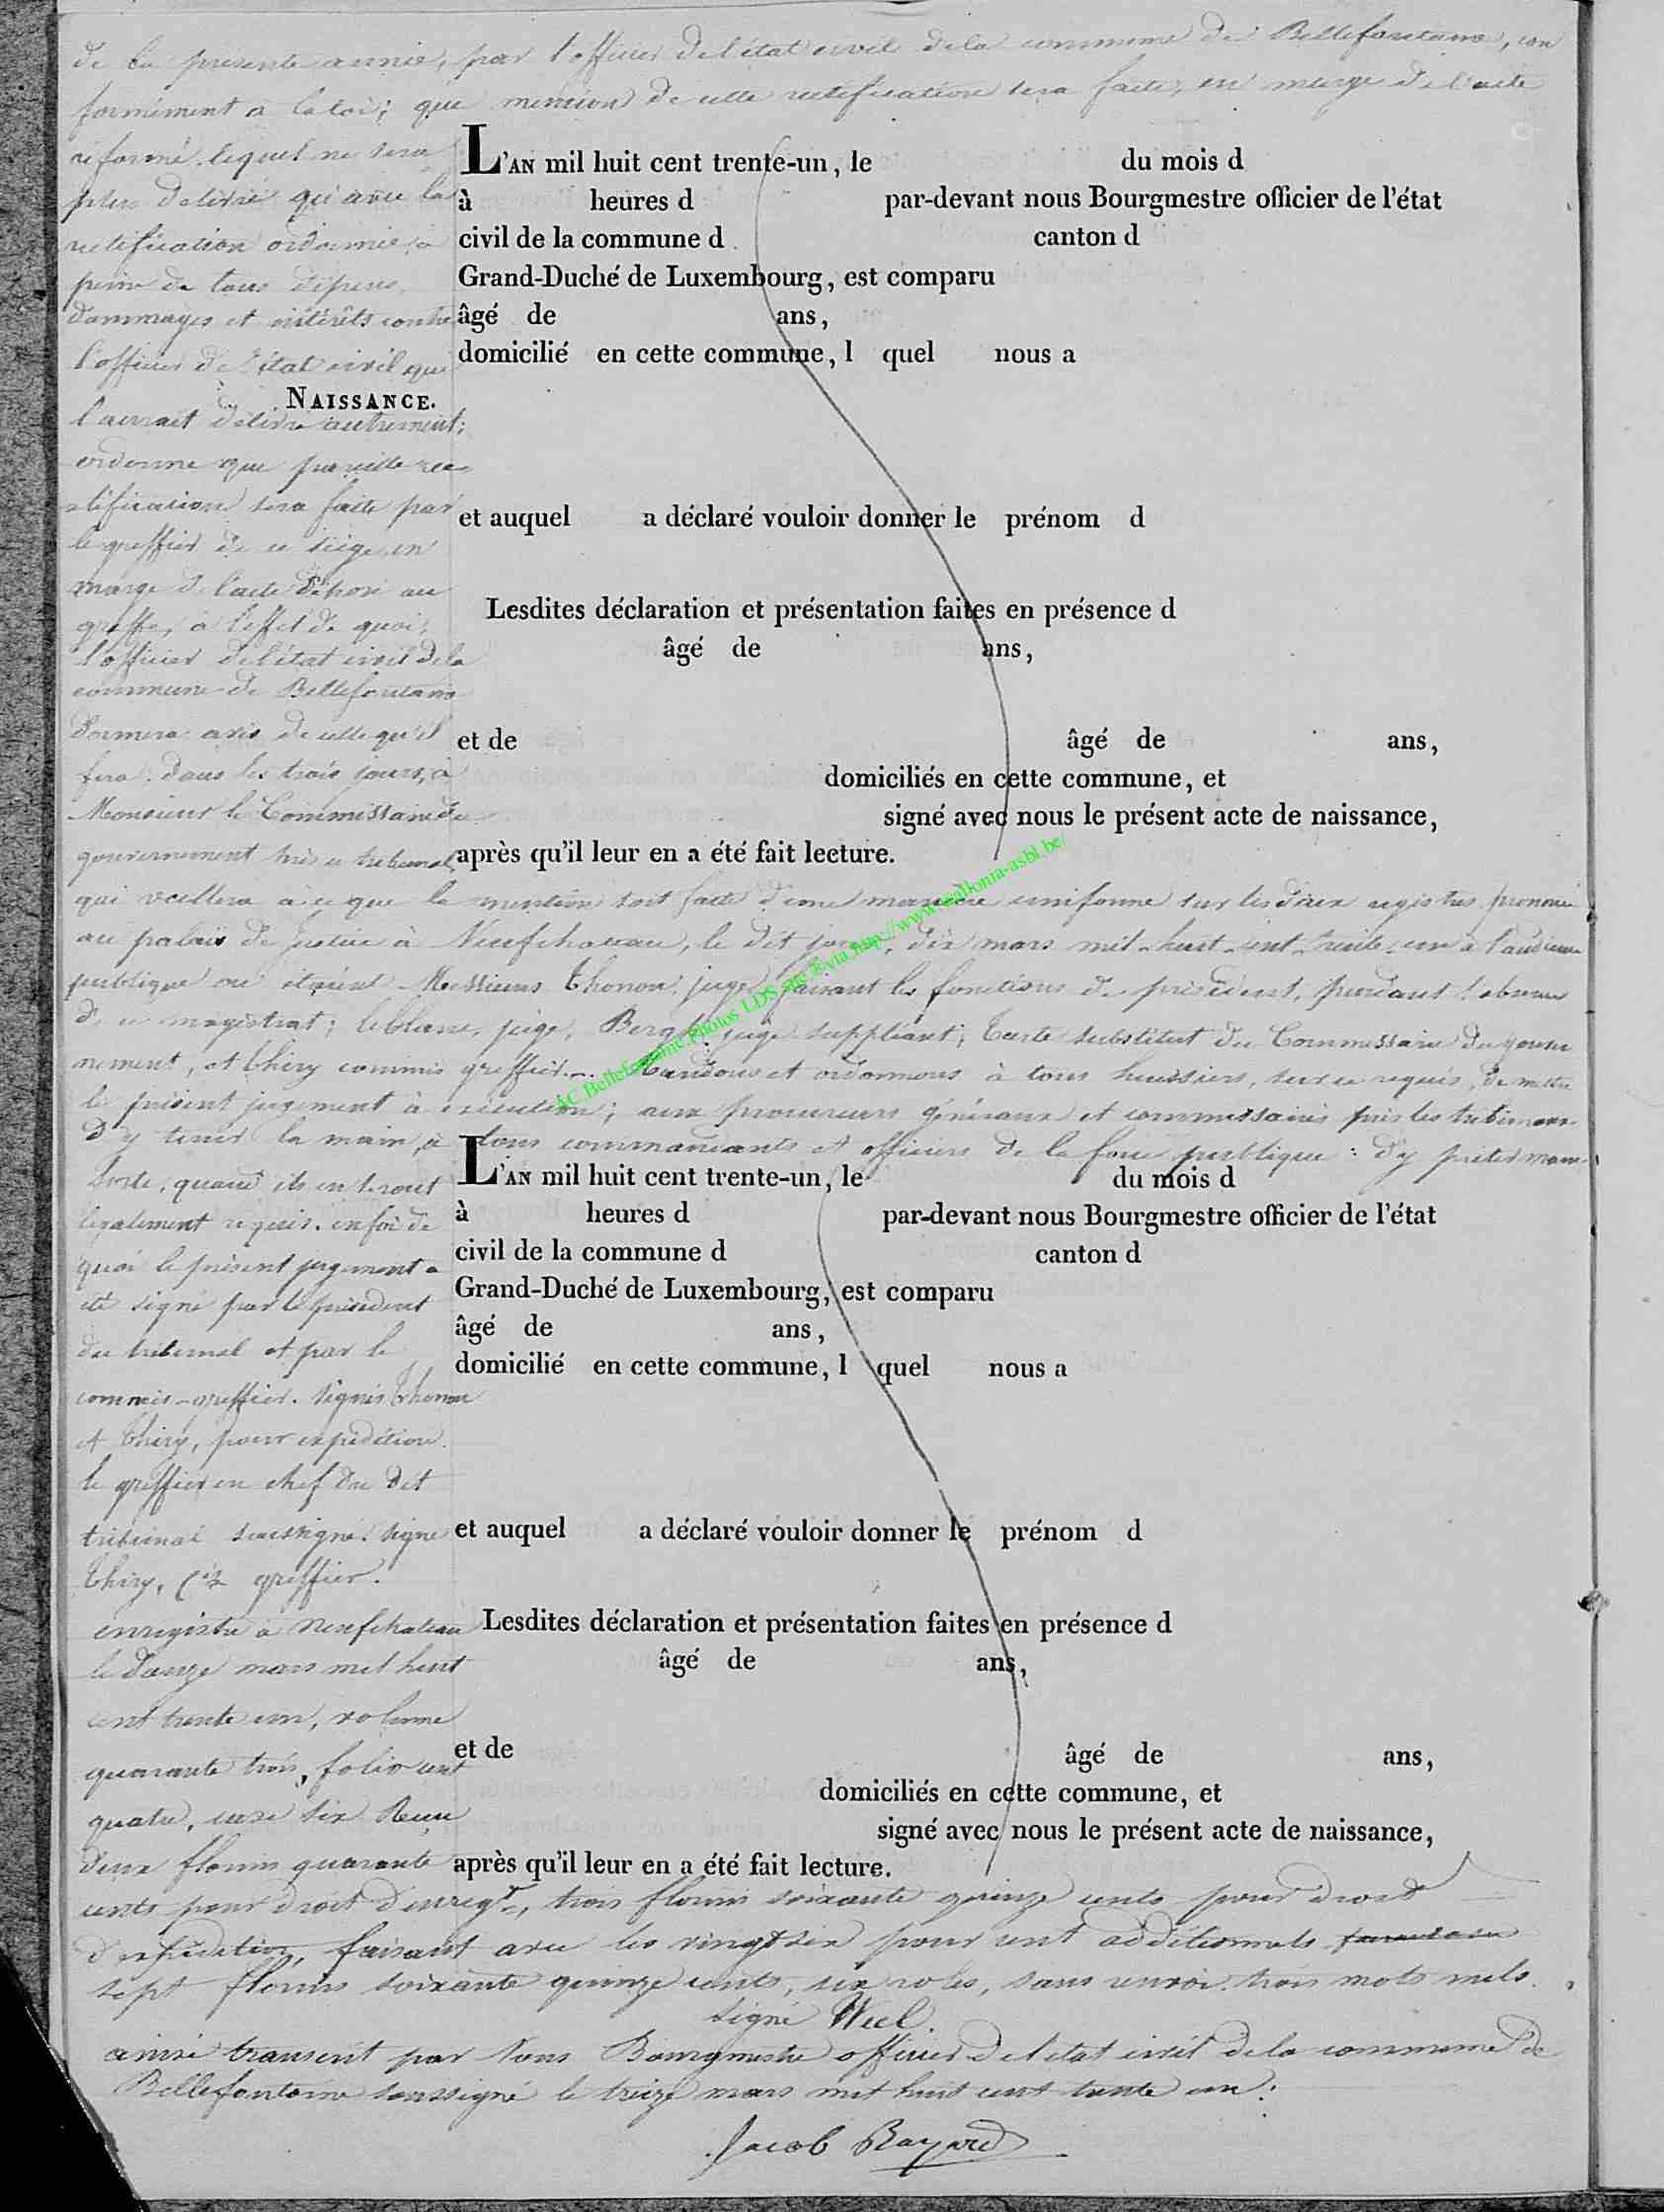 de la présente année, par l'officier de l'état civil de la commune de Bellefontaine, con
formément a la loi; que mention de cette rectification sera faite, en marge de l'acte
réformé, lequel ne sera
plus délivré qu'avec la
rectification ordonnée, à
peine de tous dépens,
dommages et intérêts contre
l'officier de l'état civil qui
l'aurait délivré autrement;
ordonne que pareille rec
tification sera faite par
le greffier de ce siège, en
marge de l'acte déposé au
greffe, à l'effet de quoi,
l'officier de l'état civil de la
commune de Bellefontaine
donnera avis de celle qu'il
fera, dans les trois jours, à
Monsieur le Commissaire du
gouvernement près ce tribunal,
qui veillera à ce que la mention soit faite d'une manière uniforme sur les deux registres. prononcé
au palais de justice à Neufchateau, le dit jour, dix mars mil-huit-cent-trente-un à l'audience
publique où étaient Messieurs Thonon, juge, faisant les fonctions de président, pendant l'absence
de ce magistrat; leblanc, juge, Bergh, juge suppléant; Tarte substitut du Commissaire du gouver
nement, et Thiry commis greffier. Mandons et ordonnons à tous huissiers, sur ce requis, de mettre
le présent jugement à exécution; aux procureurs généraux et commissaires près les tribunaux
d'y tenir la main, à tous commandants et officiers de la force publique: d'y prêter main
forte, quand ils en seront
légalement requis. en foi de
quoi le présent jugement a
été signé par le président
du tribunal et par le
commis-greffier. signés Thonon
et Thiry, pour expédition.
le greffier en chef du dit
tribunal soussigné. signé
Thiry, greffier.
enregistré à Neufchateau
le douze mars mil huit
cent trente un, volume
quarante trois, folio cent
quatre, case six Reçu
deux florins quarante
cents pour droit d'enregt, trois florins soixante quinze cents pour droit
d'expédition, faisant avec les vingt six pour cent additionnels
sept florins soixante quinze cents, six roles, sans renvoi trois mots nuls.
signé Wiel.
ainsi transcrit par Nous Bourgmestre officier de l'état civil de la commune de
Bellefontaine soussigné le treize mars mil huit cent trente un:
Jacob Bayard
L'AN mil huit cent trente-un, le du mois d
à heures d par-devant nous Bourgmestre officier de l'état
civil de la commune d canton d
Grand-Duché de Luxembourg, est comparu
âgé de ans,
domicilié en cette commune, l quel nous a
NAISSANCE.
et auquel a déclaré vouloir donner le prénom d
Lesdites déclaration et présentation faites en présence d
âgé de ans,
et de âgé de ans,
domiciliés en cette commune, et
signé avec nous le présent acte de naissance,
après qu'il leur en a été fait lecture.
L'AN mil huit cent trente-un, le du mois d
à heures d par-devant nous Bourgmestre officier de l'état
civil de la commune d canton d
Grand-Duché de Luxembourg, est comparu
âgé de ans,
domicilié en cette commune, l quel nous a
et auquel a déclaré vouloir donner le prénom d
Lesdites déclaration et présentation faites en présence d
âgé de ans,
et de âgé de ans,
domiciliés en cette commune, et
signé avec nous le présent acte de naissance,
après qu'il leur en a été fait lecture.
AC Bellefontaine Photos LDS via http://www.wallonia-asbl.be/